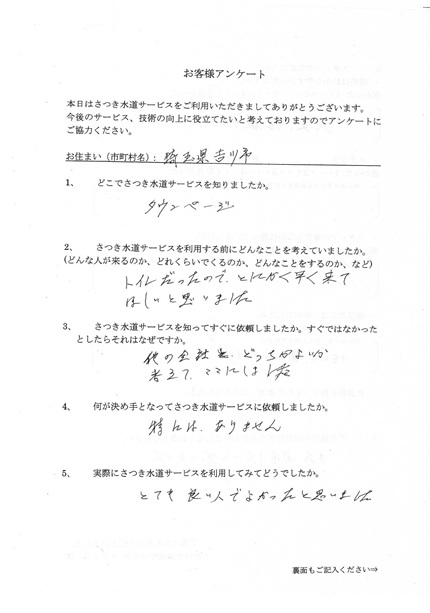 お客様アンケート
本日はさつき水道サービスをご利用いただきましてありがとうございます。
今後のサービス、技術の向上に役立てたいと考えておりますのでアンケートに
ご協力ください。
お住まい（市町村名）：埼玉県吉川市
1、 どこでさつき水道サービスを知りましたか。
タウンページ
2、 さつき水道サービスを利用する前にどんなことを考えていましたか。
(どんな人が来るのか、どれくらいでくるのか、どんなことをするのか、など)
トイレだったので、とにかく早く来て
ほしいと思いました
3、 さつき水道サービスを知ってすぐに依頼しましたか。すぐではなかった
としたらそれはなぜですか。
他の会社と、どっちがよいか
考えて、ここにしました
4、 何が決め手となってさつき水道サービスに依頼しましたか。
特には、ありません
5、 実際にさつき水道サービスを利用してみてどうでしたか。
とても良い人でよかったと思いました
裏面もご記入ください⇒